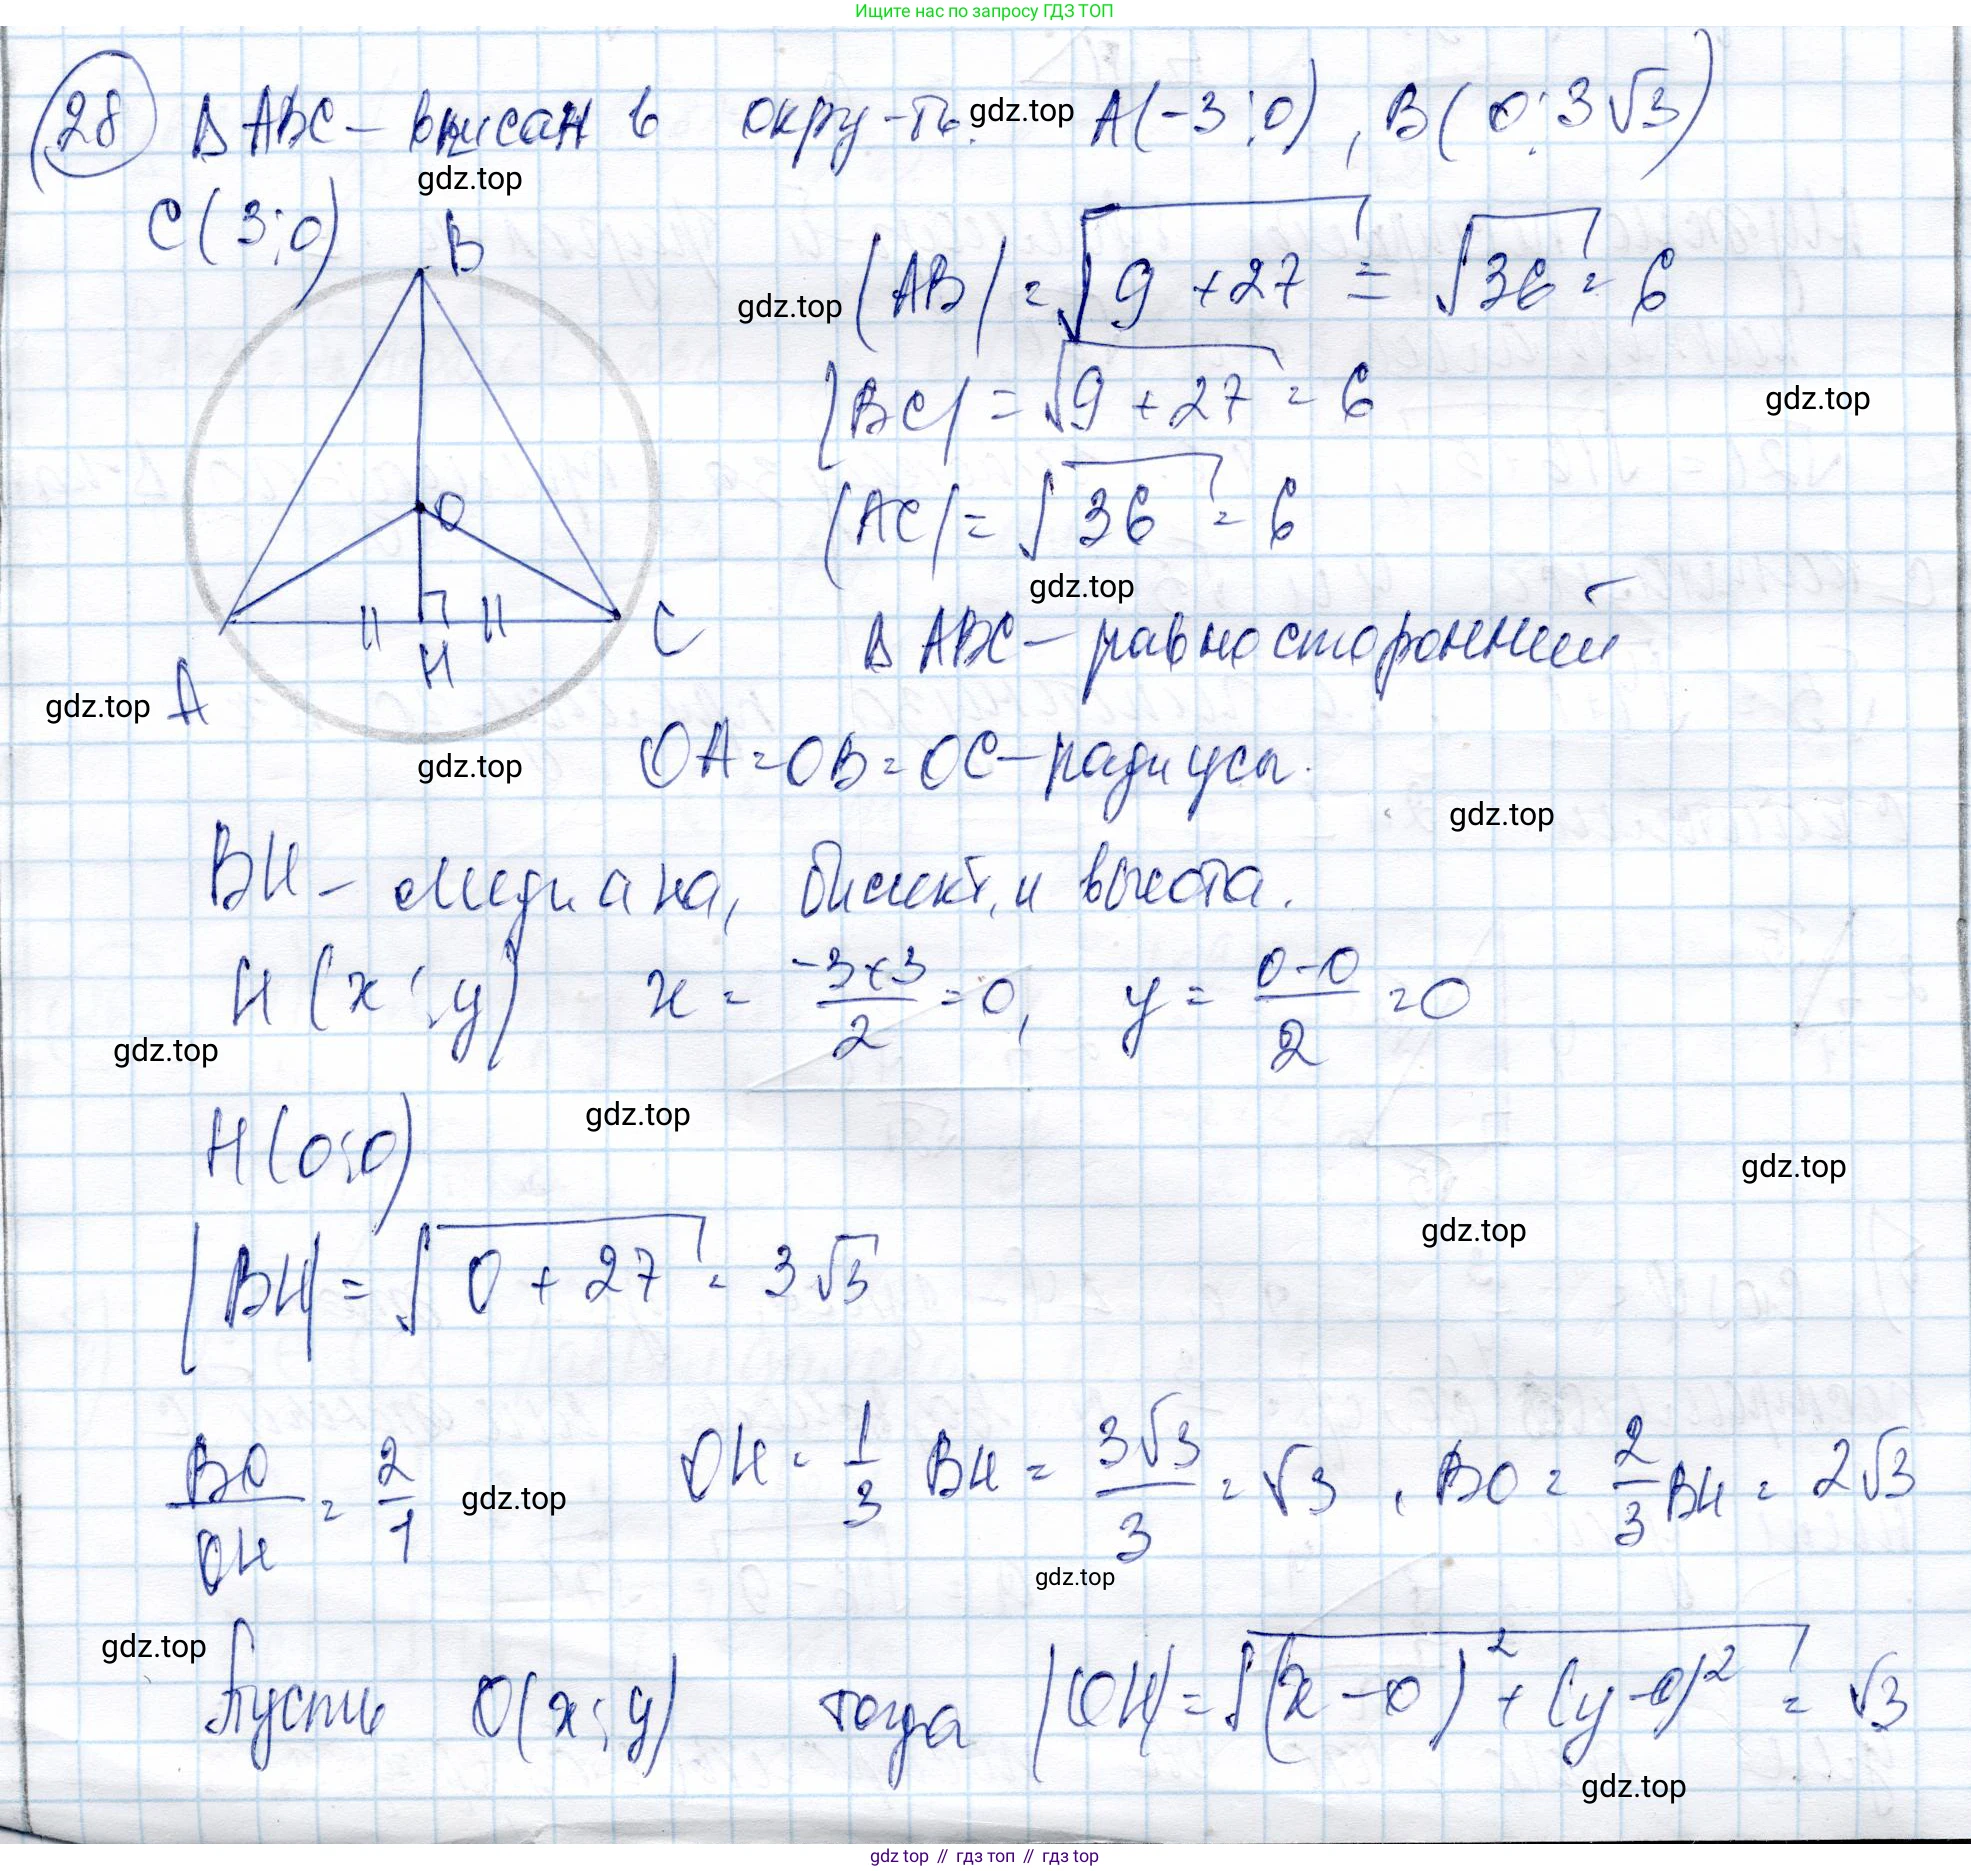 Ищите нас по запросу ГДЗ ТОП
28 Δ ABC – вписан в окру-ть. gdz.top A(-3;0), B(0;3√3)
gdz.top
C(3;0)
B
gdz.top |AB| = √9+27 = √36 = 6
|BC| = √9+27 = 6
gdz.top
|AC| = √36 = 6
O
gdz.top
C
Δ ABC – равносторонний
H
gdz.top A
OA = OB = OC – радиусы.
gdz.top
gdz.top
BH – медиана, биссект. и высота.
H(x;y) x = (-3+3)/2 = 0, y = (0-0)/2 = 0
gdz.top
gdz.top
H(0;0)
gdz.top
gdz.top
|BH| = √0+27 = 3√3
BO/OH = 2/1 gdz.top OH = 1/3 BH = 3√3/3 = √3, BO = 2/3 BH = 2√3
gdz.top
gdz.top
Пусть O(x;y) тогда |OH| = √(x-0)² + (y-0)² = √3
gdz.top
gdz top // гдз топ // гдз top